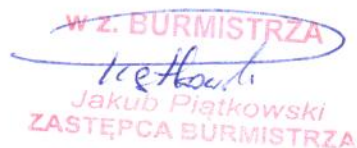 w z. BURMISTRZA
Jakub Piątkowski
ZASTĘPCA BURMISTRZA